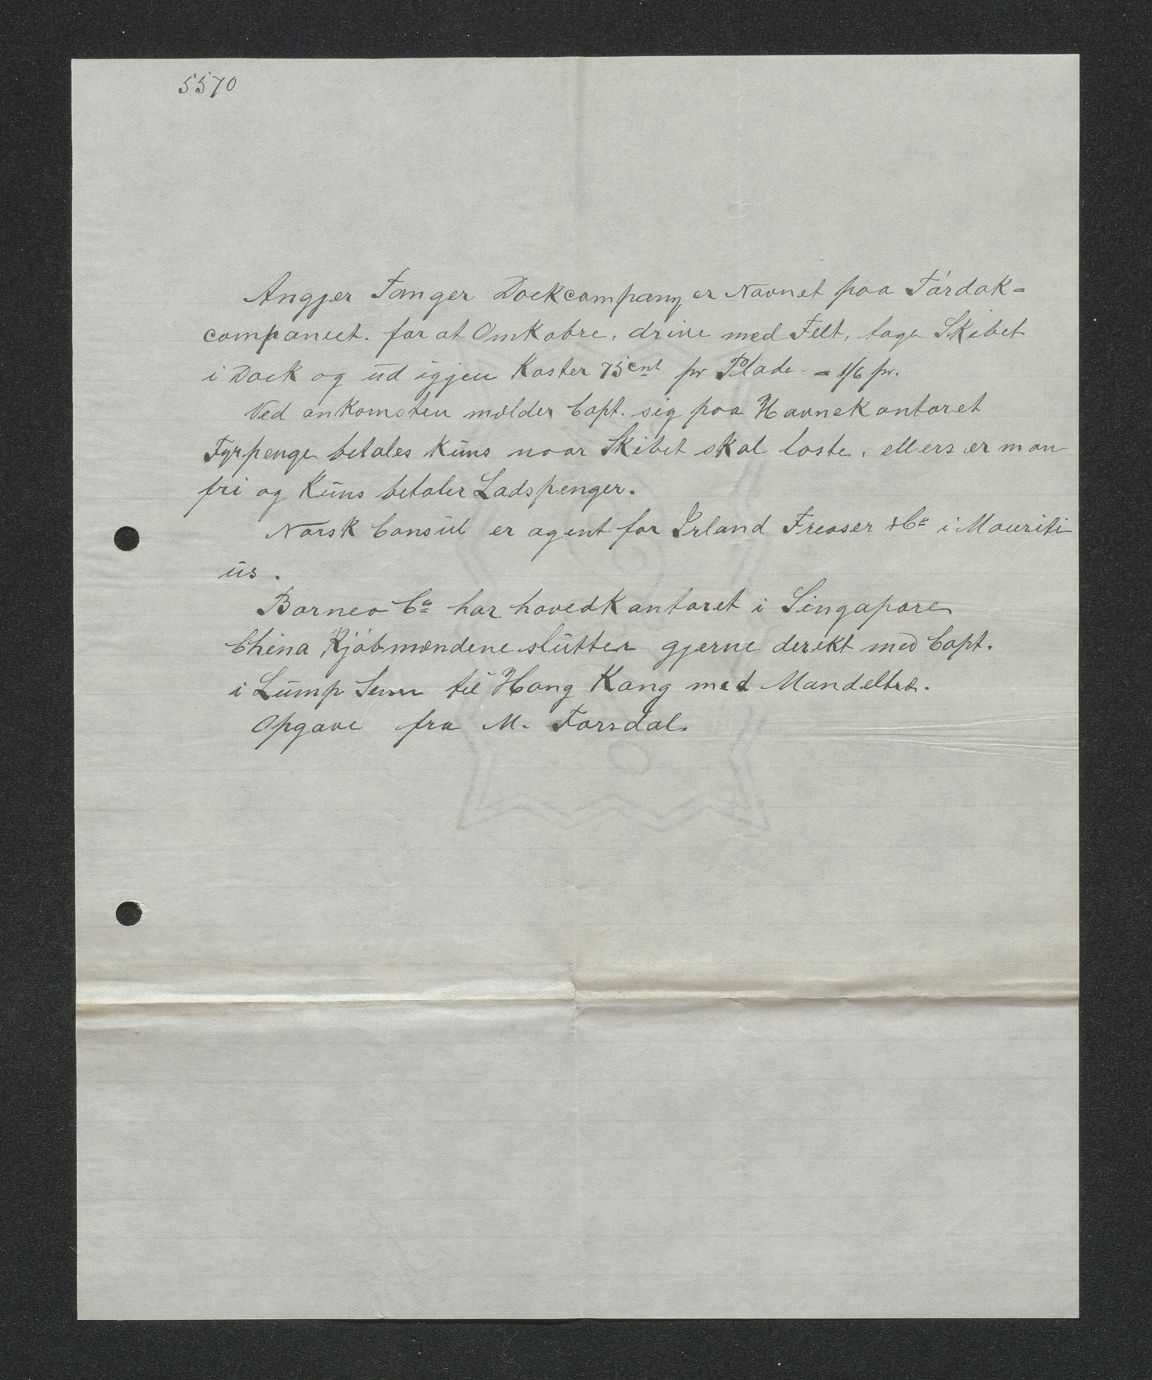 5570
Angjer Tanger Dockcompany er Navnet paa Tórdok=
companiet. for at Omkobre, drive med Felt, tage Skibet
i Dock og ud igjen Koster 75 cnt pr Plade. = 1/6 pr.
Ved ankomsten mælder Capt. sig paa Havnekontoret
Fyrpenge betales Kuns naar Skibet skal laste, ellers er man
fri og Kuns betaler Ladspenger.
Norsk Consul er agent for Irland Freaser & Co i Mauriti
us.
Borneo Co har hovedkontoret i Singapore
China Kjøbmændene slutter gjerne derekt med Capt.
i Lump Sum til Hong Kong med Mandeltræ.
Opgave fra M. Forsdal.